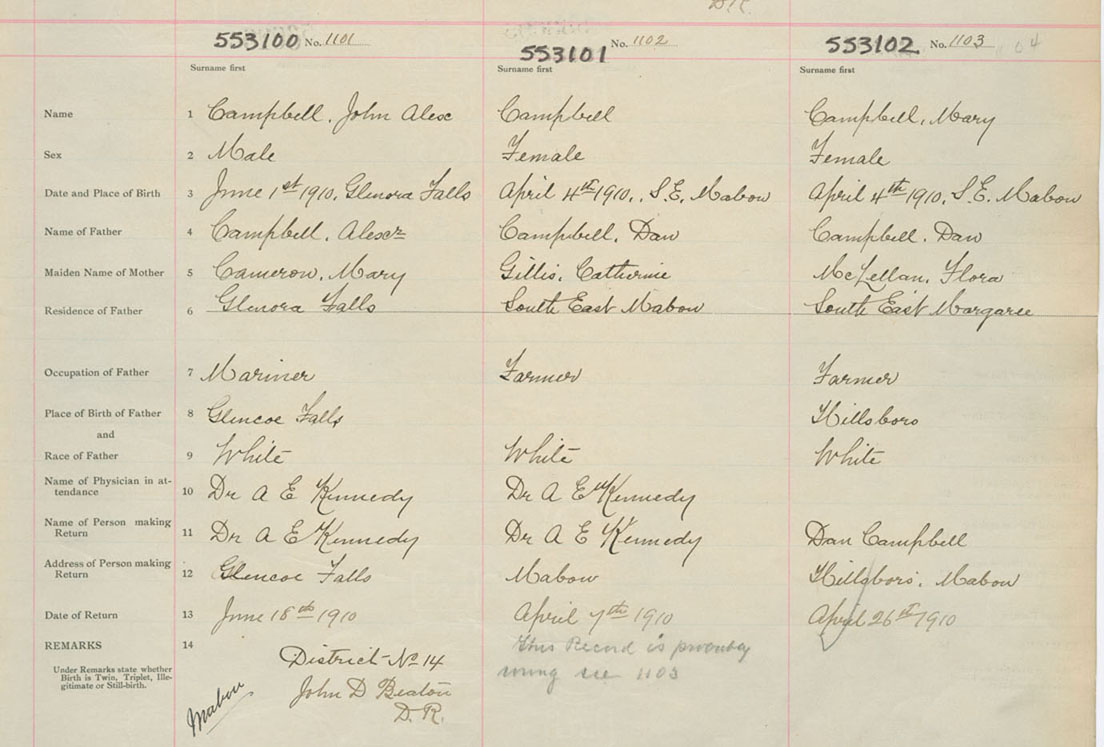 D.R.
553100 No. 1101
553101 No. 1102
553102 No. 1103
04
Surname first
Surname first
Surname first
Name 1 Campbell, John Alexr Campbell Campbell, Mary
Sex 2 Male Female Female
Date and Place of Birth 3 June 1st 1910, Glenora Falls April 4th 1910, S.E. Mabou April 4th 1910, S.E. Mabou
Name of Father 4 Campbell, Alexr Campbell, Dan Campbell, Dan
Maiden Name of Mother 5 Cameron, Mary Gillis, Catherine McLellan, Flora
Residence of Father 6 Glenora Falls South East Mabou South East Margaree
Occupation of Father 7 Mariner Farmer Farmer
Place of Birth of Father 8 Glencoe Falls Hillsboro
and
Race of Father 9 White White White
Name of Physician in at-
tendance 10 Dr A E Kennedy Dr A E Kennedy
Name of Person making
Return 11 Dr A E Kennedy Dr A E Kennedy Dan Campbell
Address of Person making
Return 12 Glencoe Falls Mabou Hillsboro, Mabou
Date of Return 13 June 18th 1910 April 7th 1910 April 26th 1910
REMARKS 14
Under Remarks state whether
Birth is Twin, Triplet, Ille-
gitimate or Still-birth.
Mabou
District No 14
John D Beaton
D.R.
This Record is probably
wrong see 1103